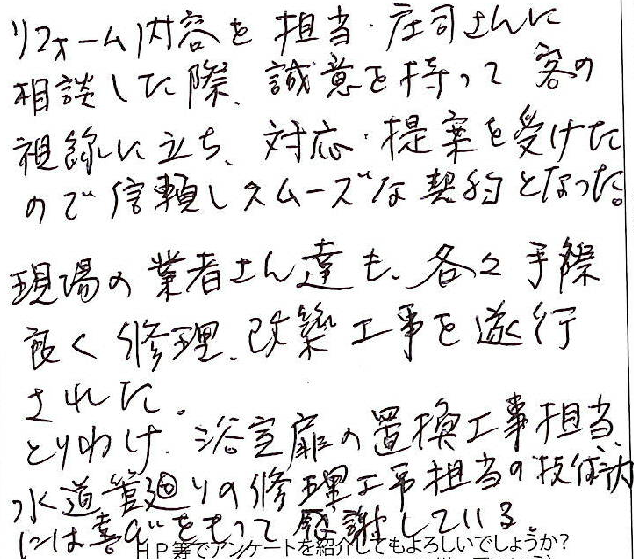 リフォーム内容を担当・庄司さんに
相談した際、誠意を持って客の
視線に立ち、対応・提案を受けた
ので信頼しスムーズな契約となった。
現場の業者さん達も、各々手際
良く修理、改築工事を遂行
された。
とりわけ、浴室扉の置換工事担当、
水道管廻りの修理工事担当の技術
には喜びをもって感謝している
HP等でアンケートを紹介してもよろしいでしょうか?